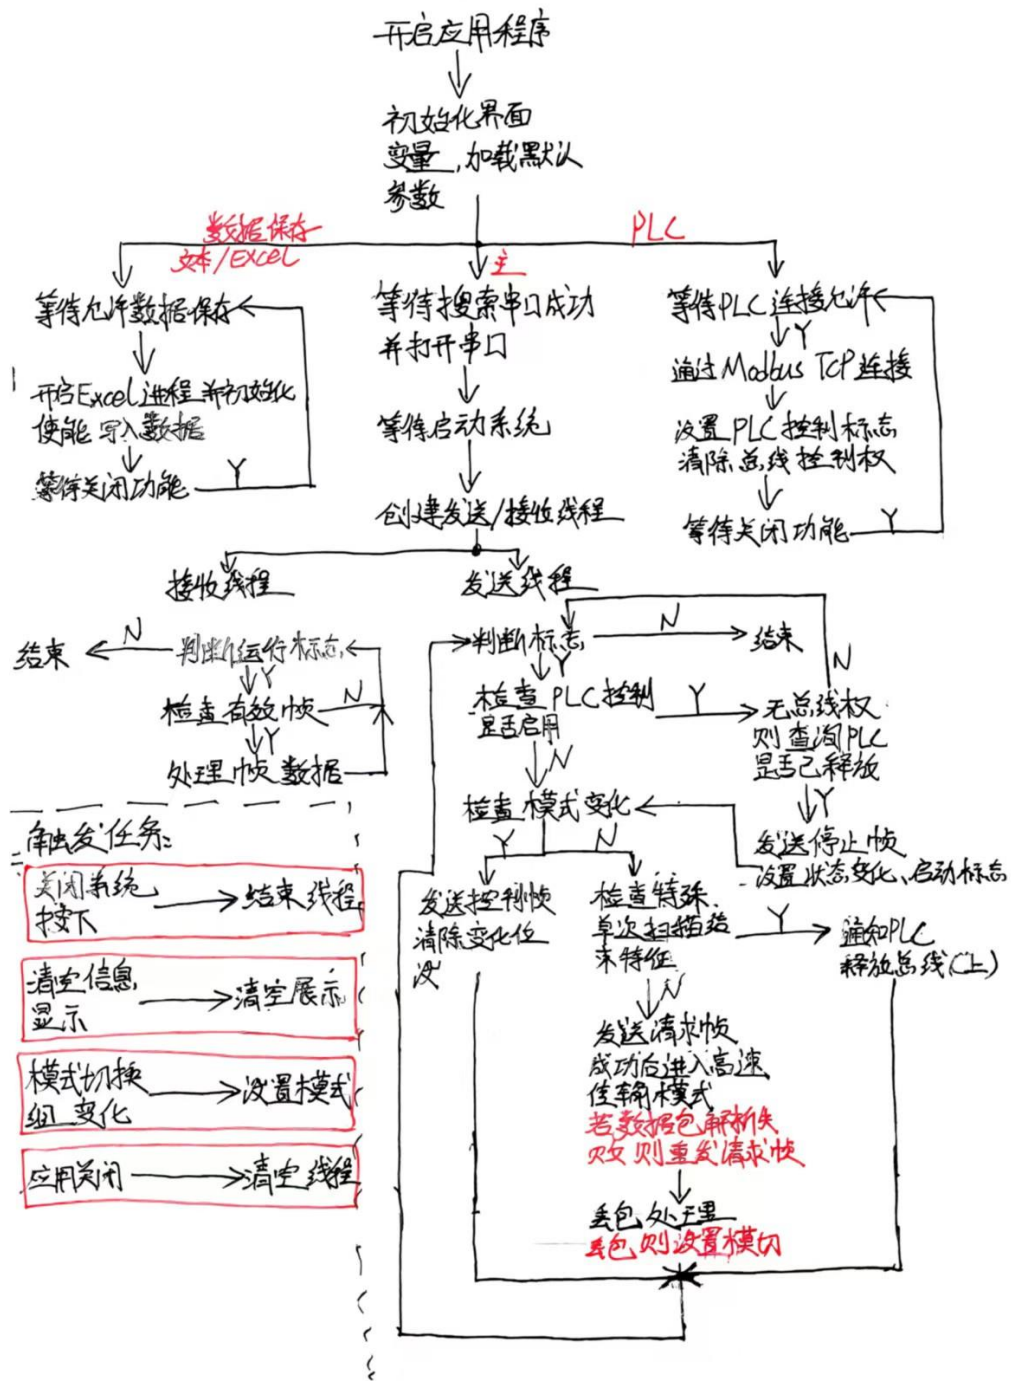 开启应用程序
初始化界面
变量,加载默认
参数
数据保存
文本/Excel
主
PLC
等待允许数据保存
开启Excel进程并初始化
使能写入数据
等待关闭功能
Y
等待搜索串口成功
并打开串口
等待启动系统
创建发送/接收线程
等待PLC连接允许
Y
通过Modbus TCP连接
设置PLC控制标志
清除总线控制权
等待关闭功能
Y
接收线程
判断运行标志
N
结束
Y
检查有效帧
N
Y
处理帧数据
发送线程
判断标志
N
结束
Y
检查PLC控制
是否启用
Y
无总线权
则查询PLC
是否已释放
N
Y
发送停止帧
设置状态变化、启动标志
N
检查模式变化
Y
N
发送控制帧
清除变化位
检查特殊
单次扫描结
束特征
Y
通知PLC
释放总线(上)
N
发送请求帧
成功后进入高速
传输模式
若数据包解析失
败,则重发请求帧
丢包处理
丢包则设置模切
触发任务:
关闭系统
按下
结束线程
清空信息
显示
清空展示
模式切换
组变化
设置模式
应用关闭
清空线程